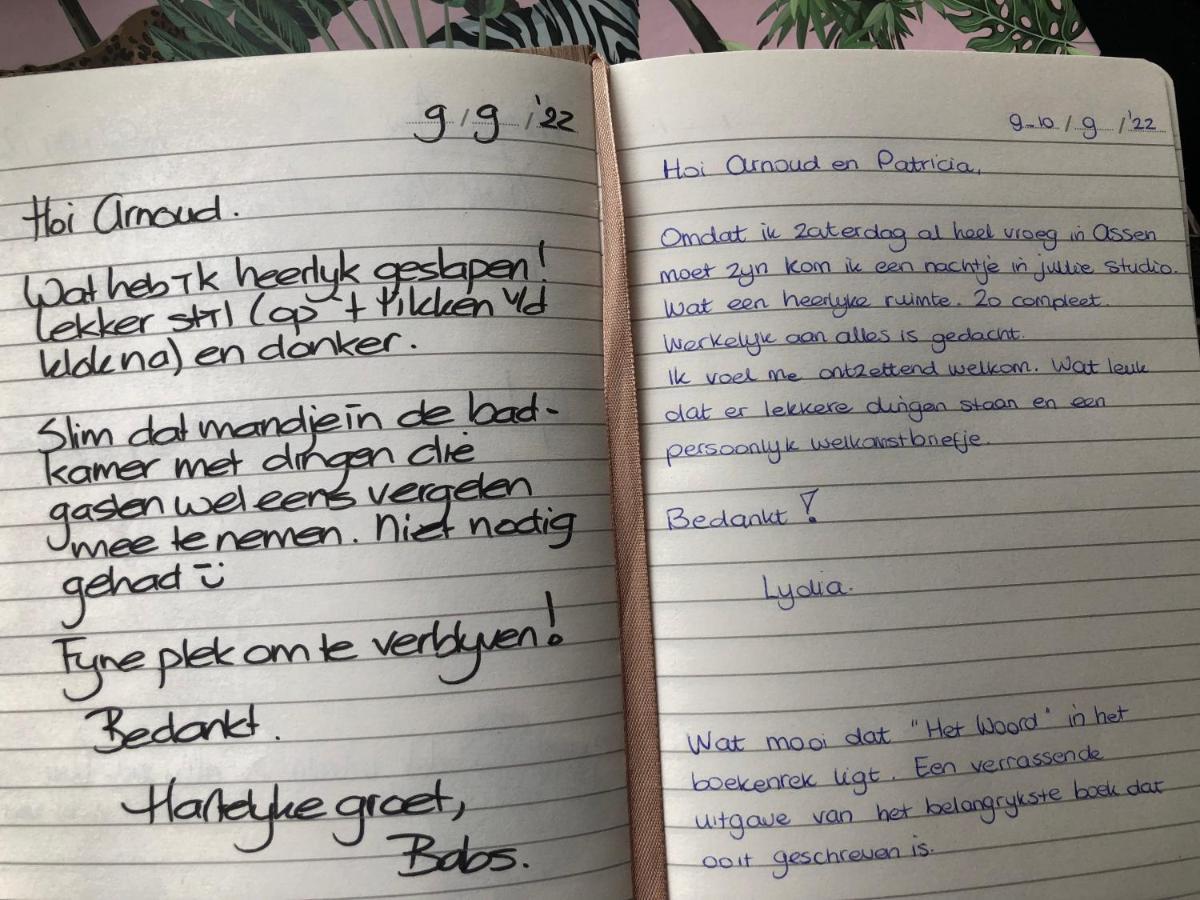 9 / 9 / '22
Hoi Arnoud.
Wat heb ik heerlijk geslapen!
Lekker stil (op 't tikken v/d
klok na) en donker.
Slim dat mandje in de bad-
kamer met dingen die
gasten wel eens vergeten
mee te nemen. Niet nodig
gehad :)
Fijne plek om te verblijven!
Bedankt.
Hartelijke groet,
Babs.
9-10 / 9 / '22
Hoi Arnoud en Patricia,
Omdat ik zaterdag al heel vroeg in Assen
moet zijn kom ik een nachtje in jullie studio.
Wat een heerlijke ruimte. Zo compleet.
Werkelijk aan alles is gedacht.
Ik voel me ontzettend welkom. Wat leuk
dat er lekkere dingen staan en een
persoonlijk welkomstbriefje.
Bedankt!
Lydia.
Wat mooi dat "Het Woord" in het
boekenrek ligt. Een verrassende
uitgave van het belangrijkste boek dat
ooit geschreven is.